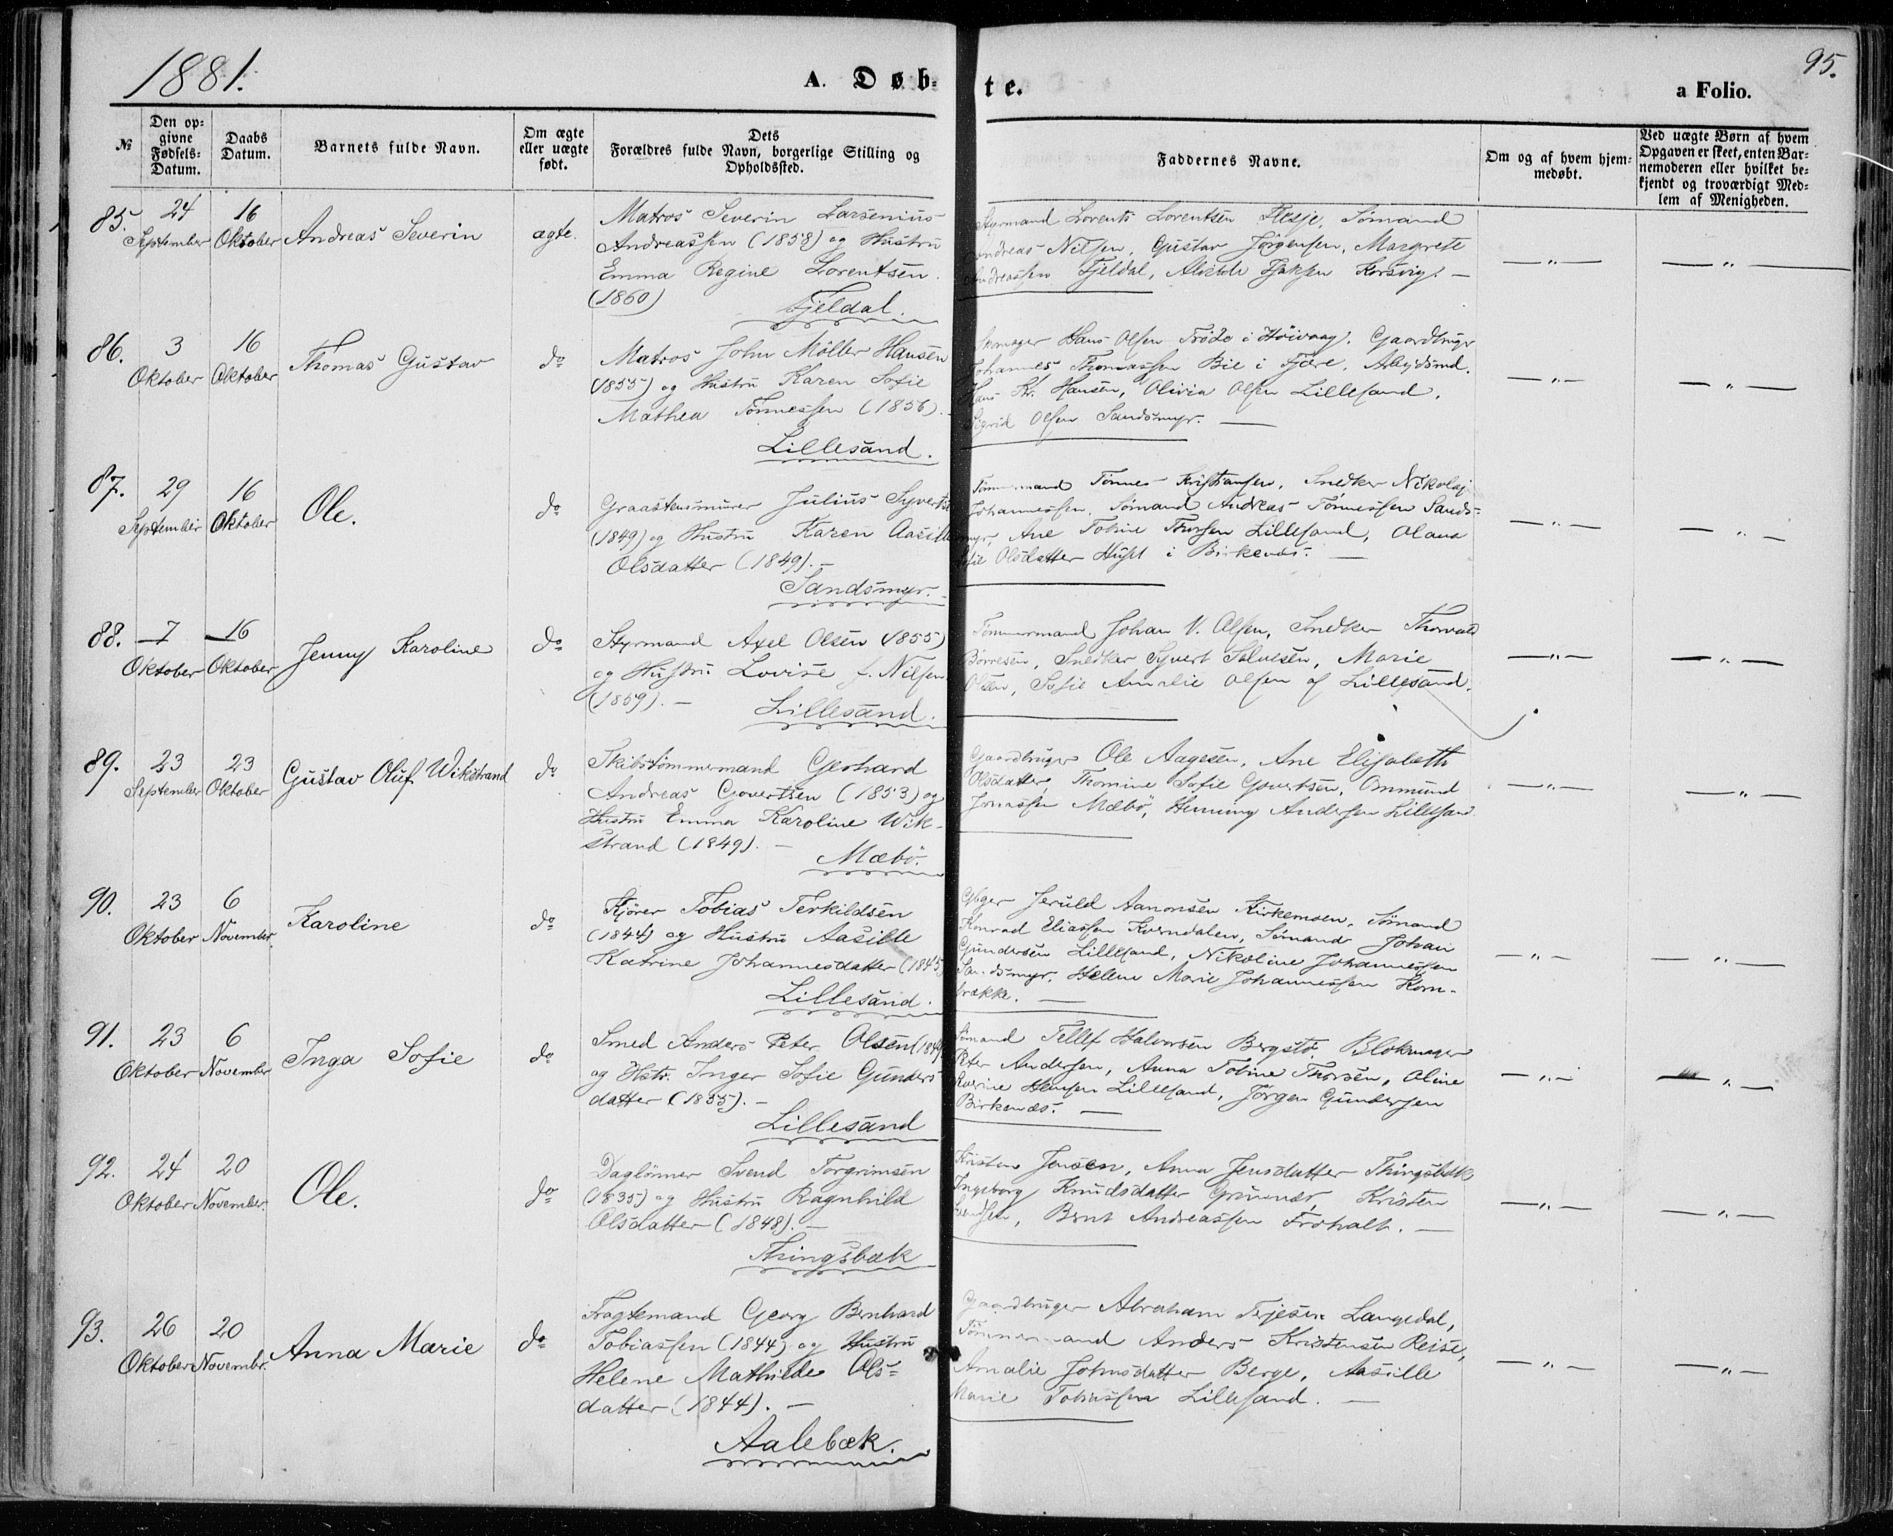 1881.
A. Døb-
te.
a Folio.
95.
№
Den op-
givne
Fødsels-
Datum.
Daabs
Datum.
Barnets fulde Navn.
Om ægte
eller uægte
født.
Dets
Forældres fulde Navn, borgerlige Stilling og
Opholdssted.
Faddernes Navne.
Om og af hvem hjem-
medøbt.
Ved uægte Børn af hvem
Opgaven er skeet, enten Bar-
nemoderen eller hvilket be-
kjendt og troværdigt Med-
lem af Menigheden.
85. 24 September
16 Oktober
Andreas Severin
ægte.
Matros Severin Larsenius
Andreassen (1858) og Hustru
Emma Regine Lorentsen.
(1860)
Fjeldal.
Styrmand Lorents Lorentsen Flesje, Sømand
Andreas Nilsen, Gustav Jørgensen, Margrete
Andreassen Fjeldal, Korsvig. —
—„— —„—
86. 3 Oktober
16 Oktober
Thomas Gustav
do
Matros John Møller Hansen
(1855) og Hustru Karen Sofie
Mathea Tønnessen (1856).
Lillesand.
Hans Olsen Trøde i Høivaag, Gaardbruger
Johannes Thomassen Bie i Fjære, Arbejdsmd.
Hans Kr. Hansen, Olivia Olsen Lillesand,
Sigrid Olsen Sandsmyr. —
—„— —„—
87. 29 September
16 Oktober
Ole.
do
Graastensmurer Julius Syverts
(1849) og Hustru Karen Aasille
Olsdatter (1849). —
Sandsmyr.
Tømmermand Tønnes Kristiansen, Snedker Nikolaj
Johannessen, Sømand Andreas Tønnessen Sands-
myr, Ane Tobine Thorsen Lillesand, Olava
Sofie Olsdatter i Birkenæs. —
—„— —„—
88. 7 Oktober
16 Oktober
Jenny Karoline
do
Styrmand Axel Olsen (1855)
og Hustru Lovise f. Nilsen
(1859). —
Lillesand.
Tømmermand Johan V. Olsen, Snedker Thorvald
Børresen, Snedker Syvert Salvesen, Marie
Olsen, Sofie Amalie Olsen af Lillesand.
—„— —„—
89. 23 September
23 Oktober
Gustav Oluf Wikstrand
do
Skibstømmermand Gerhard
Andreas Govertsen (1853) og
Hustru Emma Karoline Wik-
strand (1849). —
Mæbø.
Gaardbruger Ole Aagesen, Ane Elisabeth
Olsdatter, Thomine Sofie Govertsen, Ommund
Jonassen Mæbø, Henning Andersen Lillesand
—„— —„—
90. 23 Oktober
6 November
Karoline
do
Kjører Tobias Terkildsen
(1844) og Hustru Aasille
Katrine Johannesdatter (1845)
Lillesand.
Jeruld Aanonsen Kirkemoen, Sømand
Konrad Eliassen Korndalen, Sømand Johan
Gundersen Lillesand, Nikoline Johannessen
Sandsmyr, Helene Marie Johannessen Korn-
brække. —
—„— —„—
91. 23 Oktober
6 November
Inga Sofie
do
Smed Anders Peter Olsen (184
og Hstr. Inger Sofie Gunders
datter (1855). —
Lillesand
Sømand Tellef Halvorsen Bergstø, Blokmager
Peter Andersen, Anna Tobine Thorsen, Oline
Katrine Hansen Lillesand, Jørgen Gundersen
Birkenæs. —
—„— —„—
92. 24 Oktober
20 November.
Ole.
do
Daglønner Svend Torgrimsen
(1835) og Hustru Ragnhild
Olsdatter (1848). —
Thingsbæk
Kristen Jensen, Anna Jensdatter Thingsbæk
Ingeborg Knudsdatter Grimnæs, Kristen
Svendsen, Bernt Andreassen Froholt. —
—„— —„—
93. 26 Oktober
20 Novembr.
Anna Marie
do
Fragtemand Georg Bernhard
Tobiassen (1844) og Hustru
Helene Mathilde Ols-
datter (1844). —
Aalebæk.
Gaardbruger Abraham Terjesen Langedal,
Tømmermand Anders Kristensen Reise,
Amalie Johnsdatter Berge, Aasille
Marie Tobiassen Lillesand. —
—„— —„—